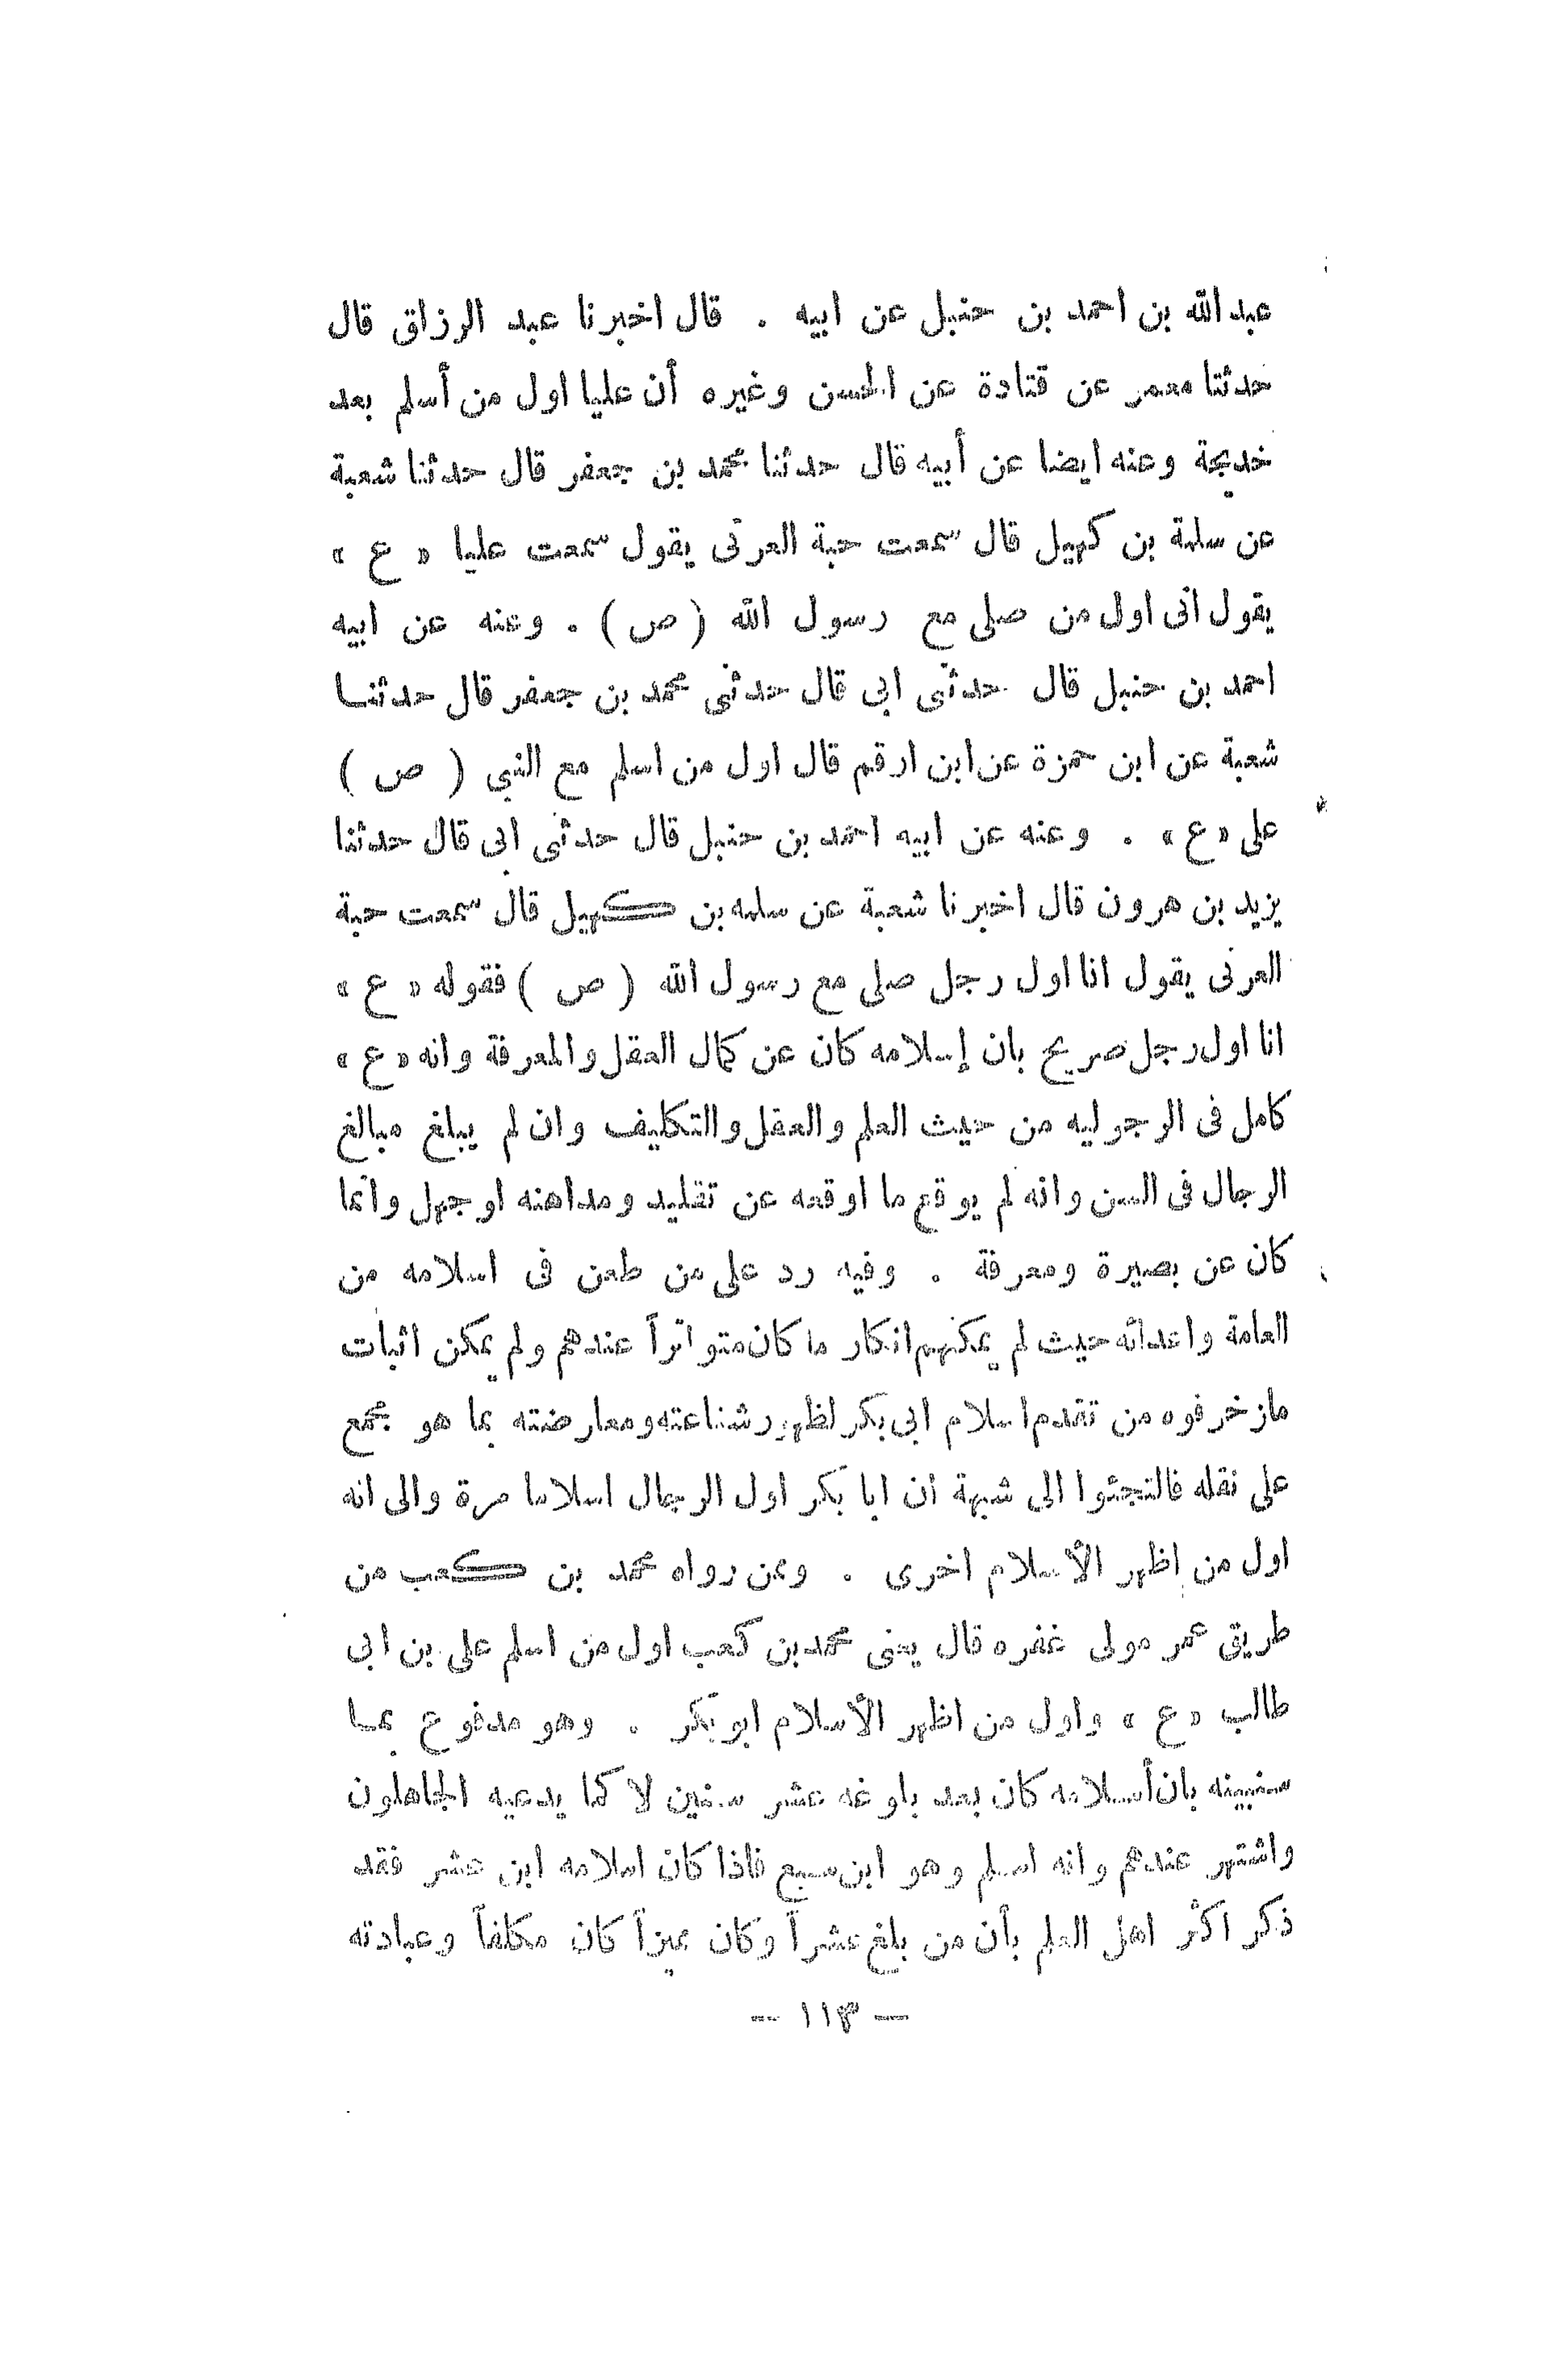 عبدالله بن احمد بن حنبل عن ابيه . قال اخبرنا عبد الرزاق قال
حدثنا معمر عن قتادة عن الحسن وغيره أن عليا اول من أسلم بعد
خديجة وعنه ايضا عن أبيه قال حدثنا محمد بن جعفر قال حدثنا شعبة
عن سلمة بن كهيل قال سمعت حبة العرنى يقول سمعت عليا « ع »
يقول انى اول من صلى مع رسول الله ( ص ) . وعنه عن ابيه
احمد بن حنبل قال حدثنى ابي قال حدثنى محمد بن جعفر قال حدثنا
شعبة عن ابن حمزة عن ابن ارقم قال اول من اسلم مع النبي ( ص )
على « ع » . وعنه عن ابيه احمد بن حنبل قال حدثنى ابى قال حدثنا
يزيد بن هرون قال اخبرنا شعبة عن سلمه بن كهيل قال سمعت حبة
العرنى يقول انا اول رجل صلى مع رسول الله ( ص ) فقوله « ع »
انا اول رجل صريح بان إسلامه كان عن كمال العقل والمعرفة وانه « ع »
كامل فى الرجوليه من حيث العلم والعقل والتكليف وان لم يبلغ مبالغ
الرجال فى السن وانه لم يوقع ما اوقعه عن تقليد ومداهنه او جهل وانما
كان عن بصيرة ومعرفة . وفيه رد على من طعن فى اسلامه من
العامة واعدائه حيث لم يمكنهم انكار ما كان متواتراً عندهم ولم يمكن اثبات
مازخرفوه من تقدم اسلام ابى بكر لظهور شناعته ومعارضته بما هو مجمع
على نقله فالتجئوا الى شبهة ان ابا بكر اول الرجال اسلاما مرة والى انه
اول من اظهر الأسلام اخرى . وممن رواه محمد بن كعب من
طريق عمر مولى غفره قال يعنى محمد بن كعب اول من اسلم على بن ابى
طالب « ع » واول من اظهر الأسلام ابو بكر . وهو مدفوع بما
سنبينه بان أسلامه كان بعد بلوغه عشر سنين لا كما يدعيه الجاهلون
واشتهر عندهم وانه اسلم وهو ابن سبع فاذا كان اسلامه ابن عشر فقد
ذكر اكثر اهل العلم بأن من بلغ عشراً وكان مميزاً كان مكلفاً وعبادته
— ١١٣ —